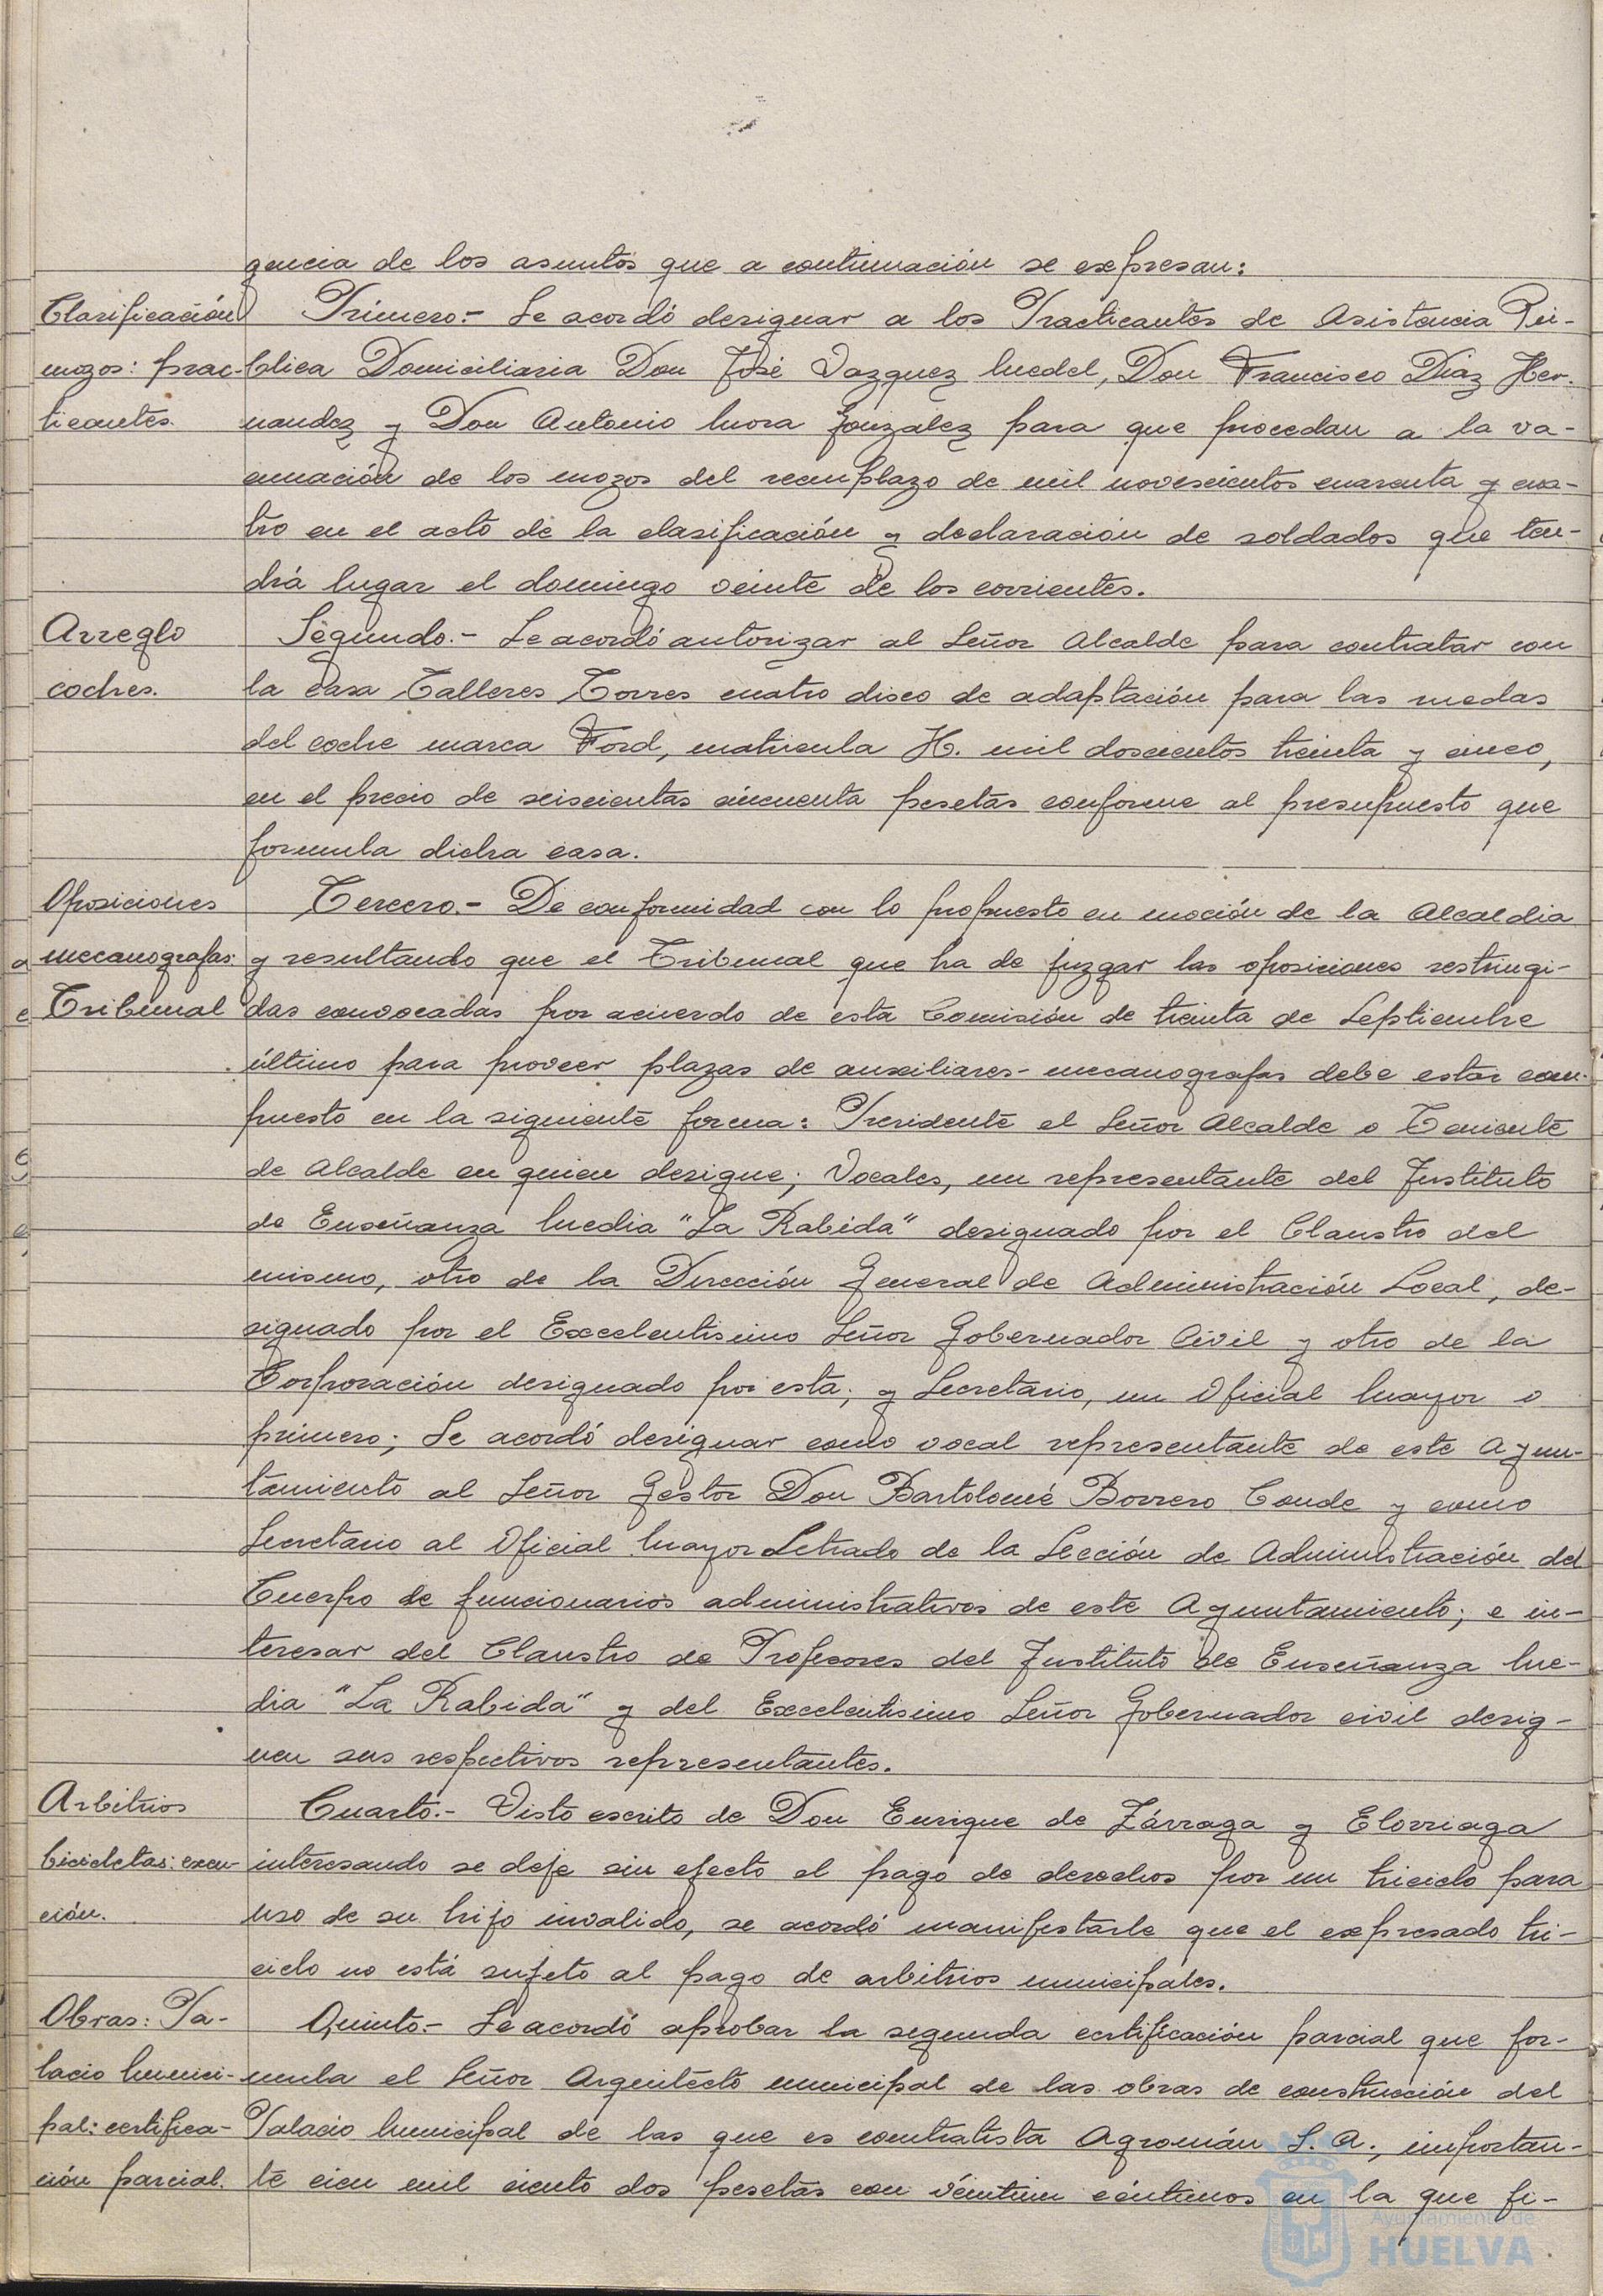 gencia de los asuntos que a continuación se expresan:
Clasificación
mozos: prac-
ticantes.
Primero.- Se acordó designar a los Practicantes de Asistencia Pú-
blica Domiciliaria Don José Vazquez Medel, Don Francisco Diaz Her-
nandez y Don Antonio Mora Gonzalez para que procedan a la va-
cunación de los mozos del reemplazo de mil novescientos cuarenta y cua-
tro en el acto de la clasificación y declaración de soldados que ten-
drá lugar el domingo veinte de los corrientes.
Arreglo
coches.
Segundo.- Se acordó autorizar al Señor Alcalde para contratar con
la casa Talleres Torres cuatro disco de adaptación para las ruedas
del coche marca Ford, matricula H. mil doscientos treinta y cinco,
en el precio de seiscientas cincuenta pesetas conforme al presupuesto que
formula dicha casa.
Oposiciones
mecanografas:
Tribunal
Tercero.- De conformidad con lo propuesto en moción de la Alcaldia
y resultando que el Tribunal que ha de juzgar las oposiciones restringi-
das convocadas por acuerdo de esta Comisión de treinta de Septiembre
último para proveer plazas de auxiliares-mecanografas debe estar com-
puesto en la siguiente forma: Presidente el Señor Alcalde o Teniente
de Alcalde en quien designe; Vocales, un representante del Instituto
de Enseñanza Media "La Rabida" designado por el Claustro del
mismo, otro de la Dirección General de Administración Local, de-
signado por el Excelentisimo Señor Gobernador Civil y otro de la
Corporación designado por esta; y Secretario, un Oficial Mayor o
primero; Se acordó designar como vocal representante de este Ayun-
tamiento al Señor Gestor Don Bartolomé Borrero Conde y como
Secretario al Oficial Mayor Letrado de la Sección de Administración del
Cuerpo de funcionarios administrativos de este Ayuntamiento; e in-
teresar del Claustro de Profesores del Instituto de Enseñanza Me-
dia "La Rabida" y del Excelentisimo Señor Gobernador civil desig-
nen sus respectivos representantes.
Arbitrios
bicicletas: exen-
ción.
Cuarto.- Visto escrito de Don Enrique de Zárraga y Elorriaga
interesando se deje sin efecto el pago de derechos por un triciclo para
uso de su hijo invalido, se acordó manifestarle que el expresado tri-
ciclo no está sujeto al pago de arbitrios municipales.
Obras: Pa-
lacio Munici-
pal: certifica-
ción parcial.
Quinto.- Se acordó aprobar la segunda certificación parcial que for-
mula el Señor Arquitecto municipal de las obras de construcción del
Palacio Municipal de las que es contratista Agromán S. A., importan-
te cien mil ciento dos pesetas con veintiun céntimos en la que fi-
Ayuntamiento de
HUELVA